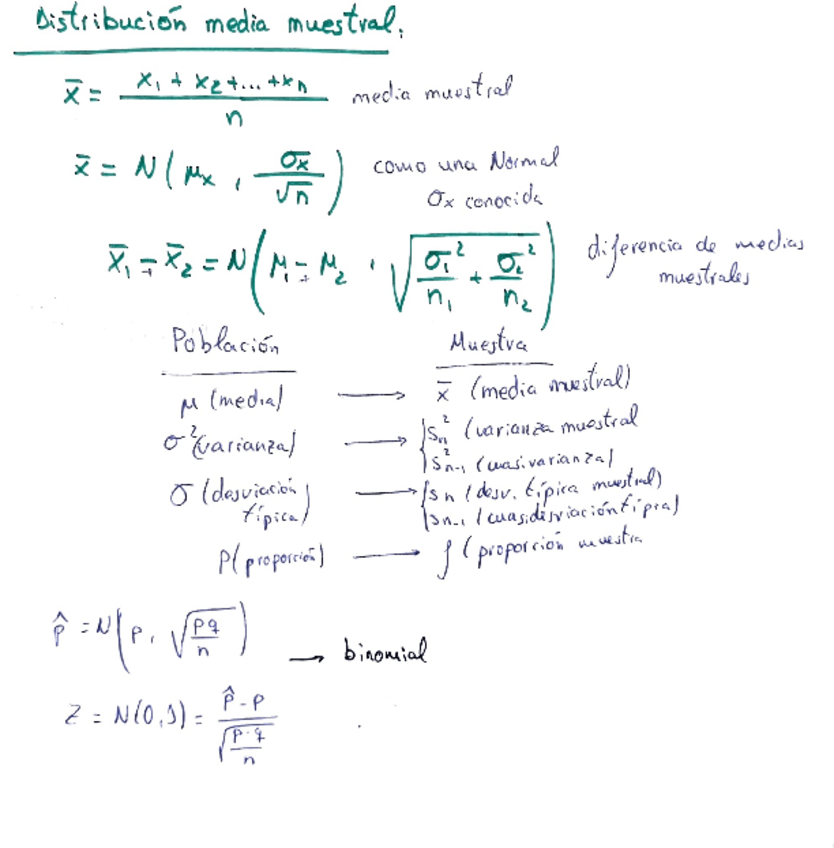 Distribución media muestral.
x̄ = (x₁ + x₂ + ... + xₙ) / n media muestral
x̄ = N(μₓ, σₓ/√n) como una Normal
σₓ conocida
x̄₁ ∓ x̄₂ = N(μ₁ ∓ μ₂, √(σ₁²/n₁ + σ₂²/n₂)) diferencia de medias
muestrales
Población Muestra
μ (media) → x̄ (media muestral)
σ² (varianza) → { sₙ² (varianza muestral
s²ₙ₋₁ (cuasivarianza)
σ (desviación típica) → { sₙ (desv. típica muestral)
sₙ₋₁ (cuasidesviación típica)
P (proporción) → f (proporción muestra
p̂ = N(p, √(pq/n)) → binomial
Z = N(0,1) = (p̂ - p) / √(p·q/n)